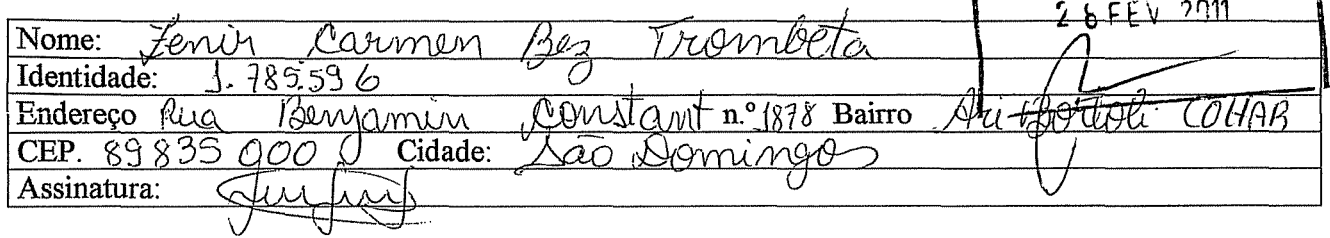 26 FEV 2011
Nome: Zenir Carmen Bez Trombeta
Identidade: 1.785.596
Endereço Rua Benjamin Constant n.º 1878 Bairro Ari COHAB
CEP. 89835 000 Cidade: São Domingos
Assinatura: